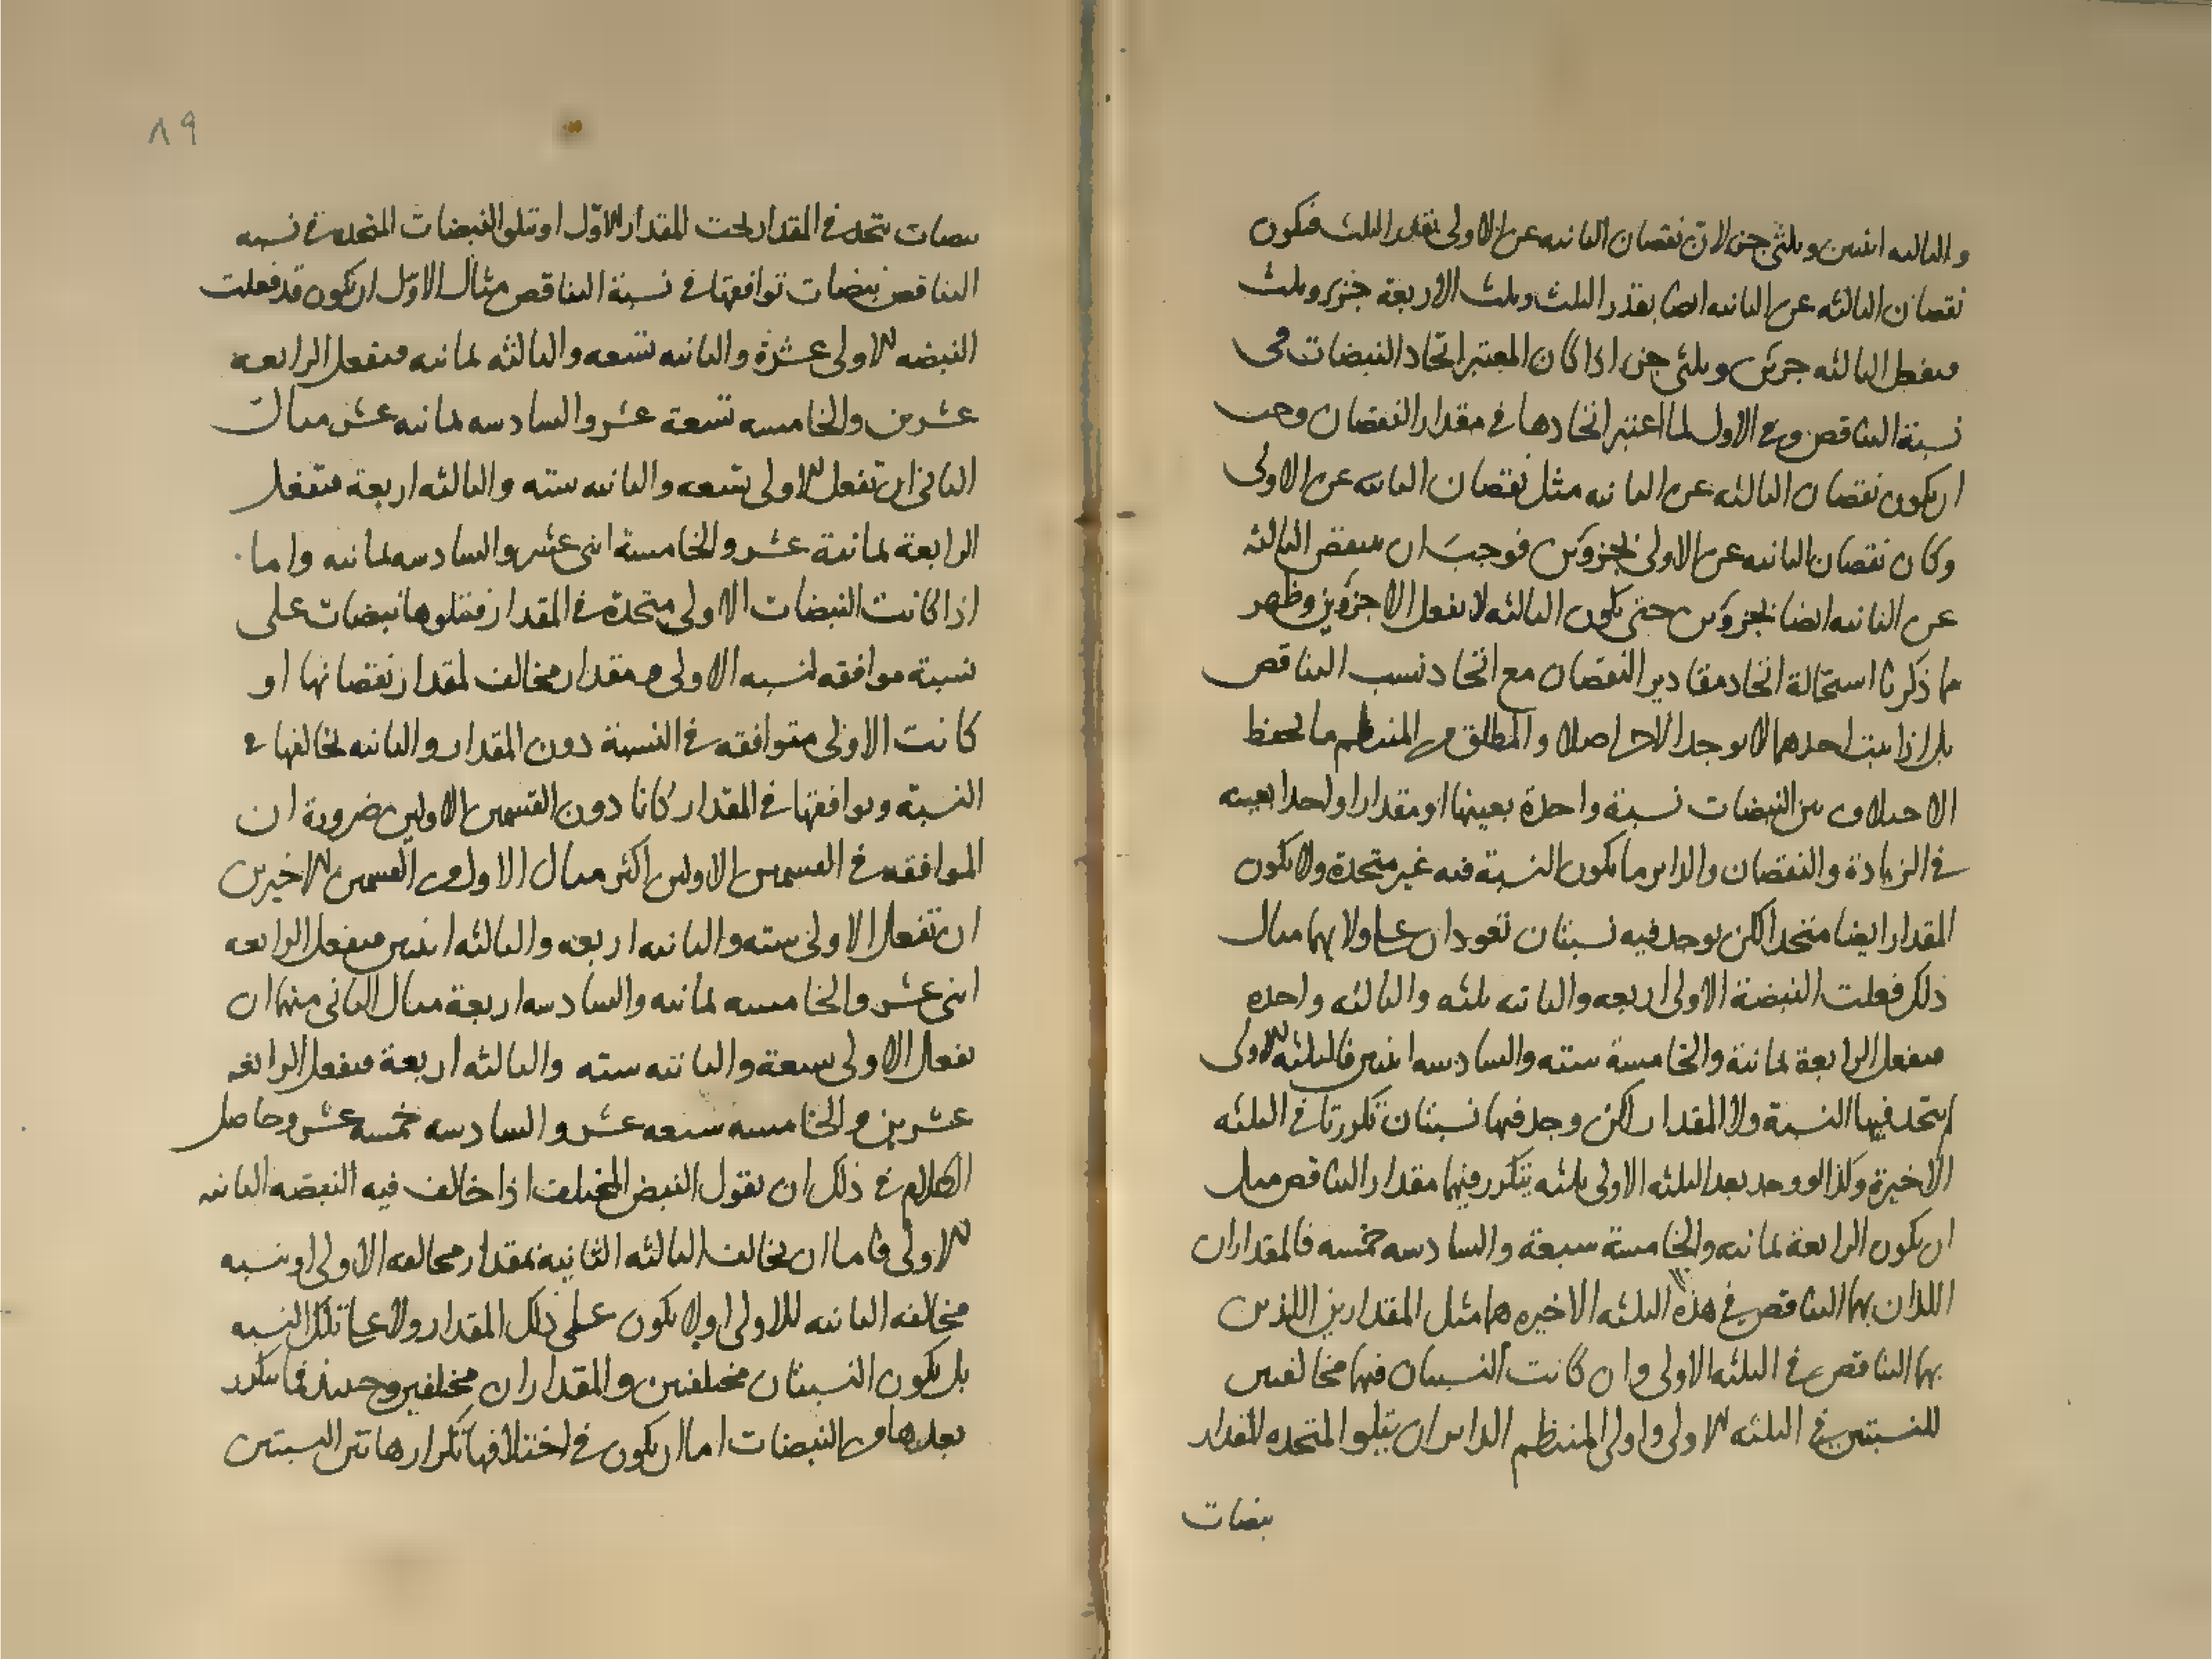 والثالثه اثنين وثلثى جزء لان نقصان الثانيه عن الاولى بقدر الثلث فيكون
نقصان الثالثه عن الثانيه ايضا بقدر الثلث وثلث الاربعة جزء وثلث
فيفعل الثالثه جزئين وثلثى جزء اذا كان المعتبر اتحاد النبضات فى
نسبة التناقص وفى الاول لما اعتبر اتحادها فى مقدار النقصان وجب
ان يكون نقصان الثالثه عن الثانيه مثل نقصان الثانيه عن الاولى
وكان نقصان الثانيه عن الاولى بجزوين فوجب ان ينقص الثالثه
عن الثانيه ايضا بجزوين حتى يكون الثالثه لا يفعل الا جزوين وظهر
مما ذكرنا استحالة اتحاد مقادير النقصان مع اتحاد نسب التناقص
بل اذا ثبت احدهما لا يوجد الاخر اصلا والمطلق من المنتظم ما يحفظ
الاختلاف بين النبضات نسبة واحدة بعينها او مقدارا واحدا بعينه
فى الزيادة والنقصان والداير ما يكون النسبة فيه غير متحدة ولا يكون
المقدار ايضا متحدا لكن يوجد فيه نسبتان تعودان على ولائهما مثال
ذلك فعلت النبضة الاولى اربعه والثانيه ثلثه والثالثه واحده
فيفعل الرابعة ثمانية والخامسة سته والسادسه اثنين فالثلثه الاولى
لم يتحد فيها النسبة ولا المقدار لكن وجد فيها نسبتان تكررتا فى الثلثه
الاخيرة وكذا لو وجد بعد الثلثه الاولى ثلثه يتكرر فيها مقدار التناقص مثل
ان يكون الرابعة ثمانيه والخامسة سبعة والسادسه خمسه فالمقداران
اللذان بهما التناقص فى هذه الثلثه الاخيره هما مثل المقدارين اللذين
بهما التناقص فى الثلثه الاولى وان كانت النسبتان فيهما مخالفتين
للنسبتين فى الثلثه الاولى واولى المنتظم الداير ان يتلوا المتحده المقدار
نبضات
٨٩
نبضات يتحد فى المقدار تحت المقدار الاول او يتلو النبضات المتحده فى نسبه
التناقص نبضات توافقها فى نسبة التناقص مثال الاول ان يكون قد فعلت
النبضه الاولى عشرة والثانيه تسعه والثالثه ثمانيه فيفعل الرابعه
عشرين والخامسه تسعة عشر والسادسه ثمانيه عشر مثال
الثانى ان تفعل الاولى تسعه والثانيه سته والثالثه اربعة فتفعل
الرابعة ثمانية عشر والخامسة اثنى عشر والسادسه ثمانيه واما
اذا كانت النبضات الاولى متحدة فى المقدار فتتلوها نبضات على
نسبة موافقه لنسبه الاولى ومقدار مخالف لمقدار نقصانها او
كانت الاولى متوافقه فى النسبة دون المقدار والثانيه تخالفها فى
النسبة وتوافقها فى المقدار كانا دون القسمين الاولين ضرورة ان
الموافقه فى القسمين الاولين اكثر مثال الاول من القسمين الاخيرين
ان تفعل الاولى سته والثانيه اربعه والثالثه اثنين فيفعل الرابعه
اثنى عشر والخامسه ثمانيه والسادسه اربعة مثال الثانى منهما ان
يفعل الاولى تسعة والثانيه سته والثالثه اربعة فيفعل الرابعه
عشرين والخامسه سبعه عشر والسادسه خمسه عشر وحاصل
الكلام فى ذلك ان نقول النبض المختلف اذا خالف فيه النبضه الثانيه
الاولى فاما ان يخالف الثالثه الثانية بمقدار مخالفه الاولى او نسبه
مخالفه الثانيه للاولى او لا يكون على ذلك المقدار ولا على تلك النسبه
بل يكون النسبتان مختلفتين والمقداران مختلفين وحينئذ فما يتكرر
بعدها من النبضات اما ان يكون فى اختلافها تكرار هاتين النسبتين